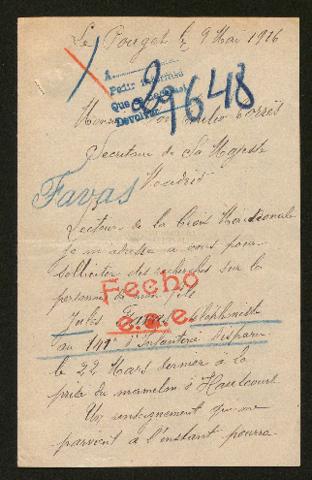 Le Pouget le 9 Mai 1916
A
Pedir informes
Que
Devolver
29648
Monsieur Emilio Torrès
Secrétaire de Sa Majesté
Madrid
Favas
Lecteur de la Croix Méridionale
je m'adresse a vous pour
solliciter des recherches sur la
personne de mon fils
Fecho
Jules Favas
e.a.e.
au 141e d'Infanterie disparu
le 22 Mars dernier à la
prise du mamelon d'Haucourt
Un renseignement qui me
parvient à l'instant pourra